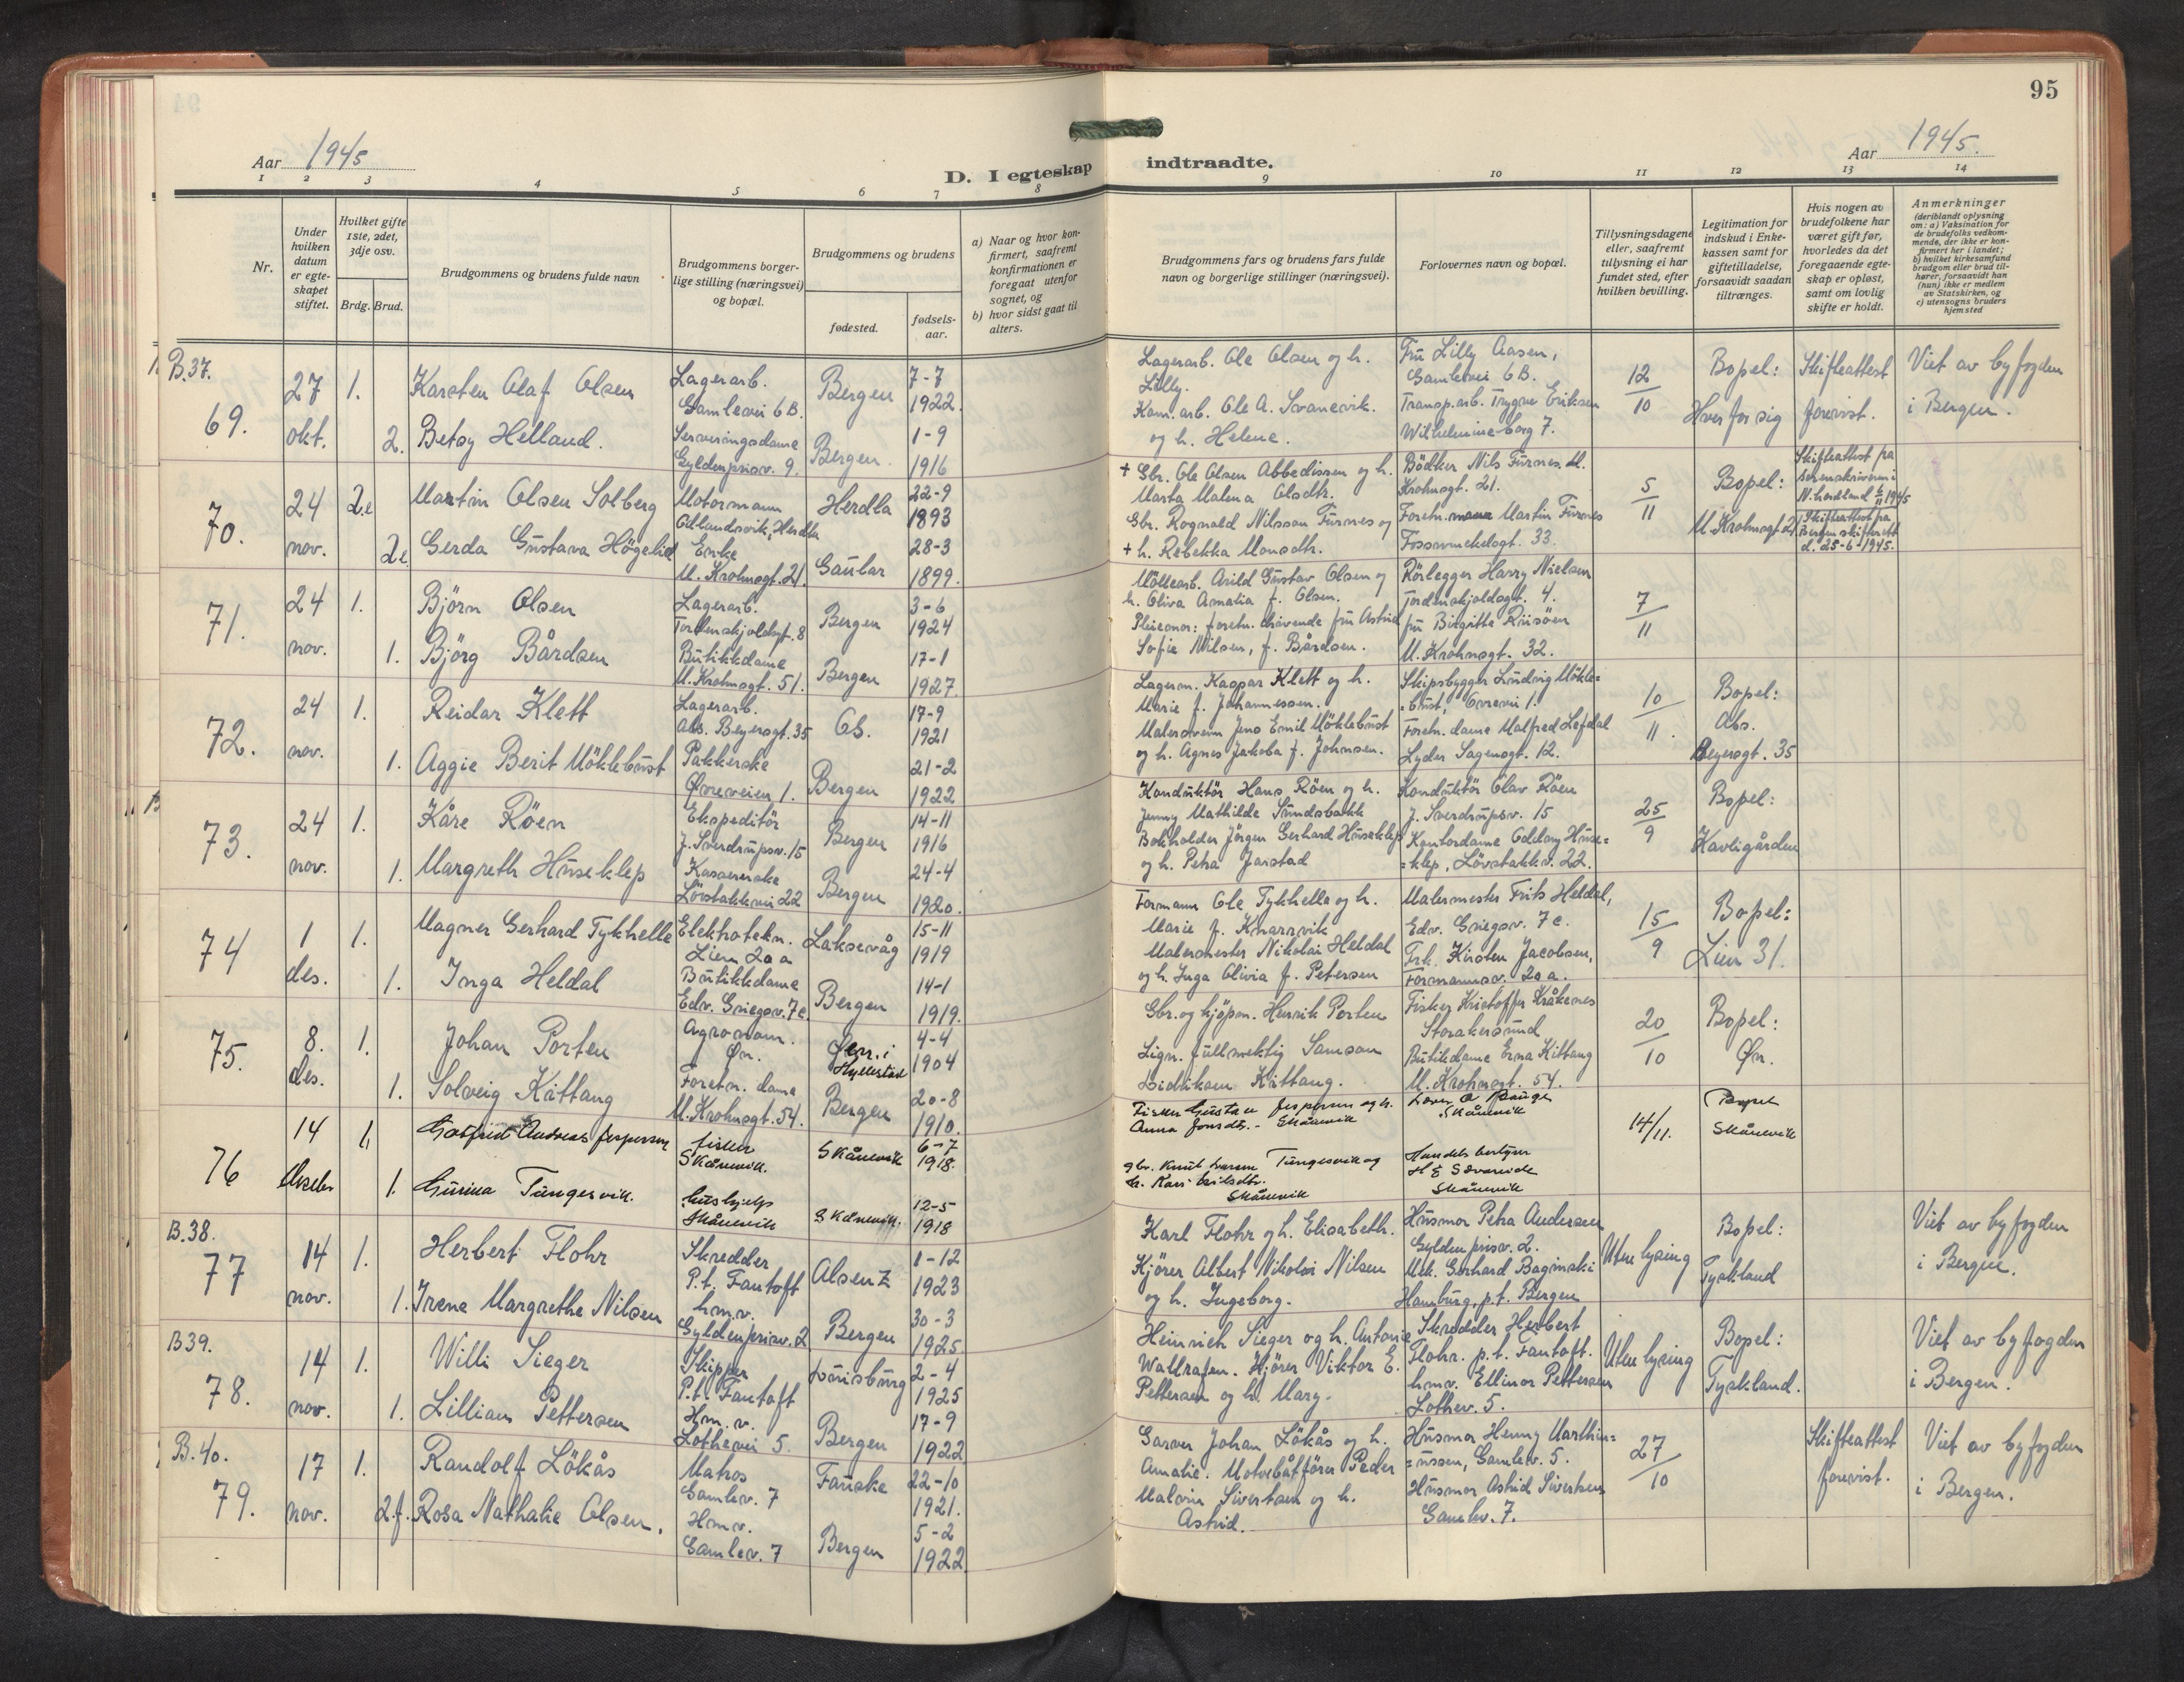 95
Aar 1945
D. I egteskap indtraadte.
Aar 1945.
1 2 3 4 5 6 7 8 9 10 11 12 13 14
Nr.
Under hvilken datum er egteskapet stiftet.
Hvilket gifte 1ste, 2det, 3dje osv.
Brdg. Brud.
Brudgommens og brudens fulde navn
Brudgommens borgerlige stilling (næringsvei) og bopæl.
Brudgommens og brudens
fødested.
fødselsaar.
a) Naar og hvor konfirmert, saafremt konfirmationen er foregaat utenfor sognet, og
b) hvor sidst gaat til alters.
Brudgommens fars og brudens fars fulde navn og borgerlige stillinger (næringsvei).
Forlovernes navn og bopæl.
Tillysningsdagene eller, saafremt tillysning ei har fundet sted, efter hvilken bevilling.
Legitimation for indskud i Enkekassen samt for giftetilladelse, forsaavidt saadan tiltrænges.
Hvis nogen av brudefolkene har været gift før, hvorledes da det foregaaende egteskap er opløst, samt om lovlig skifte er holdt.
Anmerkninger
(deriblandt oplysning om: a) Vaksination for de brudefolks vedkommende, der ikke er konfirmert her i landet;
b) hvilket kirkesamfund brudgom eller brud tilhører, forsaavidt han (hun) ikke er medlem av Statskirken, og
c) utensogns bruders hjemsted
B.37.
69.
27 okt.
1.
Karsten Olaf Olsen
Lagerarb.
Gamlevei 6B.
Bergen
7-7
1922.
2.
Betsy Helland.
Serveringsdame
Gyldenprisv. 9.
Bergen.
1-9
1916
Lagerarb. Ole Olsen og h.
Lilly.
Kom. arb. Ole A. Svanevik.
og h. Helene.
Fru Lilly Aasen,
Gamlevei 6B.
Transp.arb. Trygve Eriksen
Wilhelmineborg 7.
12/10
Bopel:
Hver for sig
Skifteattest
forevist.
Viet av byfogden
i Bergen.
70.
24 nov.
2.e
Martin Olsen Solberg
Motormann
Adlandsvik, Herdla
Herdla
22-9
1893
2e
Gerda Gustava Högelid
Enke
M. Krohnsgt. 21.
Gaular
28-3
1899.
+ Gbr. Ole Olsen Abbedissen og h.
Marta Malena Olsdtr.
Gbr. Rognald Nilsson Furnes og
+ h. Rebekka Monsdtr.
Bödker Nils Furnes. M.
Krohnsgt. 21.
Foretn.mann Martin Furnes
Fosswinckelsgt. 33.
5/11
Bopel:
M. Krohnsgt. 21.
Skifteattest fra
sorenskriveren i
N.hordland 6/11 1945
Skifteattest fra
Bergen skifterett
d. 25-6-1945.
71.
24 nov.
1.
Björn Olsen
Lagerarb.
Tordenskjoldsgt. 8
Bergen
3-6
1924
1.
Björg Bårdsen
Butikkdame
M. Krohnsgt. 51.
Bergen
17-1
1927.
Möllearb. Arild Gustav Olsen og
h. Oliva Amalia f. Olsen.
Pleiemor: foretn. drivende fru Astrid
Sofie Nilsen, f. Bårdsen.
Rörlegger Harry Nielsen
Tordenskjoldsgt. 4.
fru Birgitte Riisöen
M. Krohnsgt. 32.
7/11
72.
24 nov.
1.
Reidar Klett
Lagerarb.
Abs. Beyersgt. 35
Os.
17-9
1921
1.
Aggie Berit Möklebust
Pakkerske
Øvreveien 1.
Bergen
21-2
1922
Lagerm. Kaspar Klett og h.
Marie f. Johannessen.
Malersvenn Jens Emil Möklebust
og h. Agnes Jakoba f. Johnsen.
Skipsbygger Ludvig Mökle=
=bust, Övrevei 1.
Foretn. dame Malfred Lofdal
Lyder Sagensgt. 12.
10/11.
Bopel:
Abs.
Beyersgt. 35
73.
24 nov.
1.
Kåre Röen
Ekspeditör
J. Sverdrupsv. 15
Bergen
14-11
1916
1.
Margreth Huseklep
Kassererske
Lövstakkvei 22
Bergen
24-4
1920.
Konduktör Hans Röen og h.
Jenny Mathilde Sundsbakk
Bokholder Jörgen Gerhard Huseklep
og h. Petra Jarstad
Konduktör Olav Röen
J. Sverdrupsv. 15
Kontordame Oddny Huse=
=klep, Lövstakkv. 22.
25/9
Bopel:
Kavligården
74
1 des.
1.
Magner Gerhard Tykhelle
Elektrotekn.
Lien 20a
Laksevåg
15-11
1919
1.
Inga Heldal
Butikkdame
Edv. Griegsv. 7c.
Bergen
14-1
1919.
Formann Ole Tykhelle og h.
Marie f. Knarrvik
Malermester Nikolai Heldal
og h. Inga Olivia f. Petersen
Malermester Frits Heldal,
Edv. Griegsv. 7c.
Frk. Kirsten Jacobsen,
Formannsv. 20a.
15/9
Bopel:
Lien 31.
75.
8. des.
1.
Johan Porten
Agronom.
Øn.
Øen i
Hyllestad
4-4
1904
1.
Solveig Kittang
Foretn. dame
M. Krohnsgt. 54.
Bergen
20-8
1910.
Gbr. og kjöpm. Henrik Porten
Lign. fullmektig Samson
Kittang.
Fisker Kristoffer Kråkenes
Storakersund
Butikdame Erna Kittang
M. Krohnsgt. 54.
20/10
Bopel:
Øn.
76
14
1.
Gotfred Andreas Jespersen
fisker
Skånevik.
Skånevik
6-7
1918.
1.
Gurina Tungesvik.
hushjelp
Skånevik
Skånevik.
12-5
1918
Fisker Gustav Jespersen og h.
Anna Jonsdtr. - Skånevik
gbr. Knut Larsen Tungesvik og
h. Kari
Skånevik
Skånevik
Handelsbestyrer
Skånevik
14/11.
Bopel
Skånevik
B.38.
77
14 nov.
1.
Herbert Flohr
Skredder
P.t. Fantoft
Alsenz
1-12
1923
1.
Irene Margrethe Nilsen
hmv.
Gyldenprisv. 2
Bergen
30-3
1925
Karl Flohr og h. Elisabeth.
Kjörer Albert Nikolai Nilsen
og h. Ingeborg.
Husmor Petra Andersen
Gyldenprisv. 2.
Mek. Gerhard Baginski
Hamburg, p.t. Bergen
Uten lysing
Bopel:
Tyskland
Viet av byfogden
i Bergen.
B39.
78.
14 nov.
1.
Willi Sieger
Skipper
P.t. Fantoft
Duisburg
2-4
1925
1.
Lillian Pettersen
Hm. v.
Lothevei 5.
Bergen
17-9
1922
Heinrich Sieger og h. Antonie
Wallrafen. Kjörer Viktor E.
Pettersen og h. Mary.
Skredder Herbert
Flohr. p.t. Fantoft.
hmv. Ellinor Pettersen
Lothev. 5.
Uten lysing
Bopel:
Tyskland.
Viet av byfogden
i Bergen.
B.40.
79.
17 nov.
1.
Randolf Lökås
Matros
Gamlev. 7
Fauske
22-10
1921.
2.f.
Rosa Nathalie Olsen.
Hmv.
Gamlev. 7
Bergen
5-2
1922.
Garver Johan Lökås og h.
Amalie. Motorbåtförer Peder
Malvin Sivertsen og h.
Astrid.
Husmor Henny Marthin=
=ussen, Gamlev. 5.
Husmor Astrid Sivertsen
Gamlev. 7.
27/10
Skifteattest
forevist.
Viet av byfogden
i Bergen.